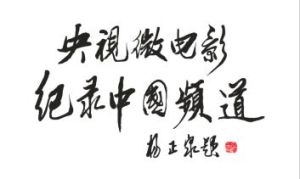 央視微电影
纪录中國頻道
杨正泉题